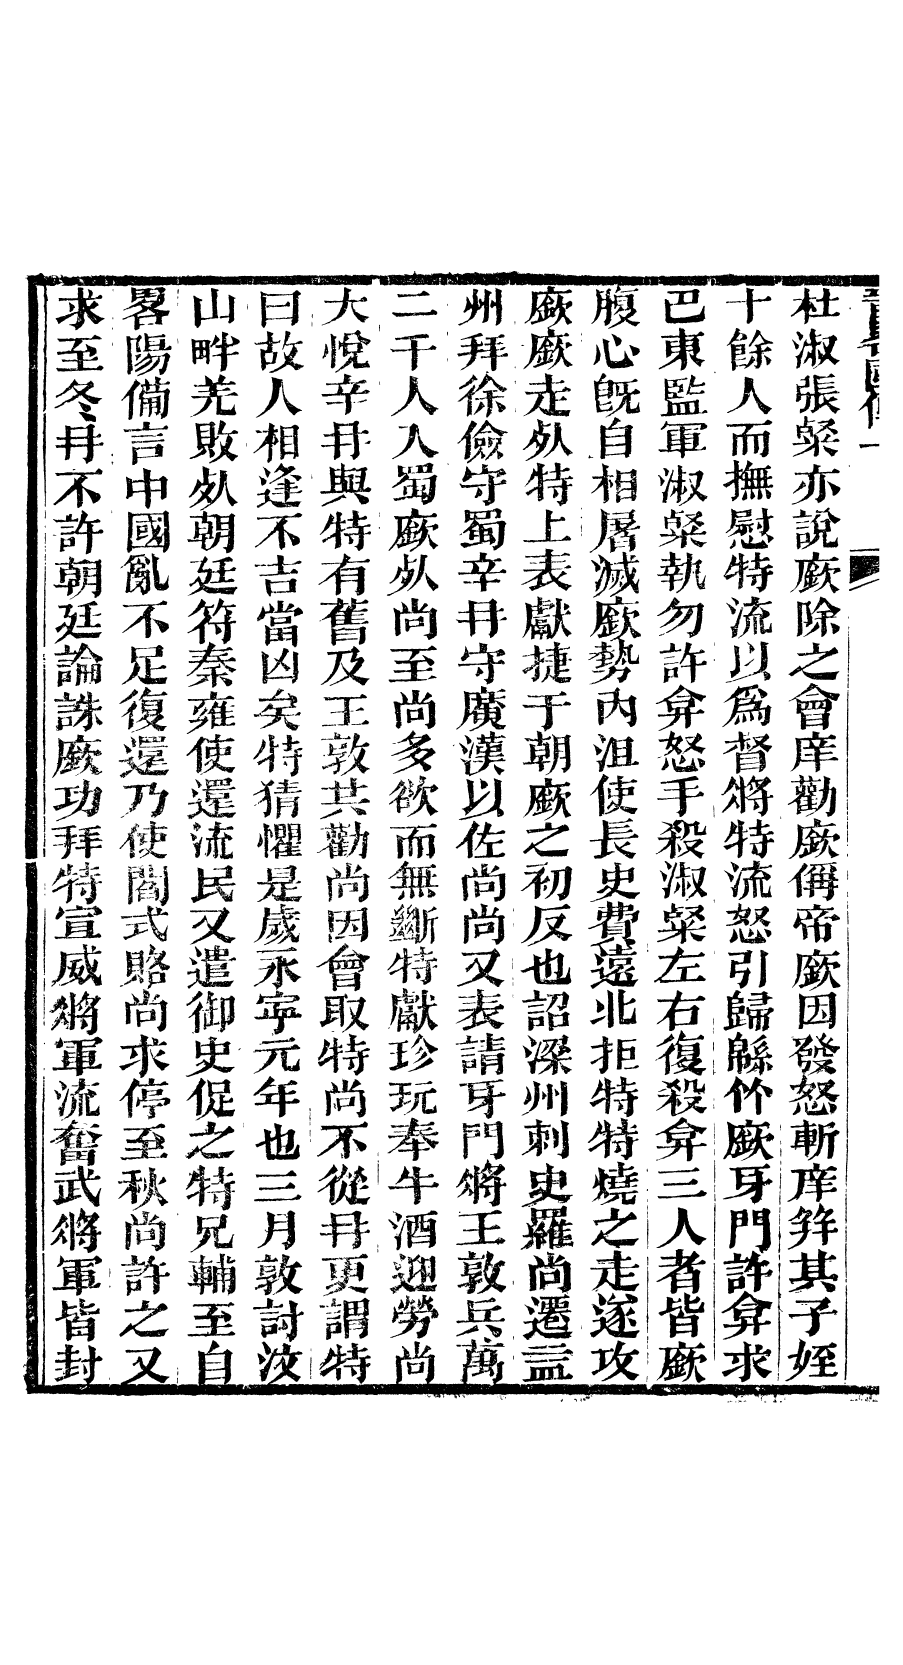 杜淑張粲亦說廞除之會庠勸廞偁帝廞因發怒斬庠并其子姪
十餘人而撫慰特流以爲督將特流怒引歸緜竹廞牙門許弇求
巴東監軍淑粲執勿許弇怒手殺淑粲左右復殺弇三人者皆廞
腹心旣自相屠滅廞勢內沮使長史費遠北拒特特燒之走遂攻
廞廞走死特上表獻捷于朝廞之初反也詔梁州刺史羅尚遷益
州拜徐儉守蜀辛冉守廣漢以佐尚尚又表請牙門將王敦兵萬
二千人入蜀廞死尚至尚多欲而無斷特獻珍玩奉牛酒迎勞尚
大悅辛冉與特有舊及王敦共勸尚因會取特尚不從冉更謂特
曰故人相逢不吉當凶矣特猜懼是歲永寜元年也三月敦討汶
山畔羌敗死朝廷符秦雍使還流民又遣御史促之特兄輔至自
畧陽備言中國亂不足復還乃使閻式賂尚求停至秋尚許之又
求至冬冉不許朝廷論誅廞功拜特宣威將軍流奮武將軍皆封